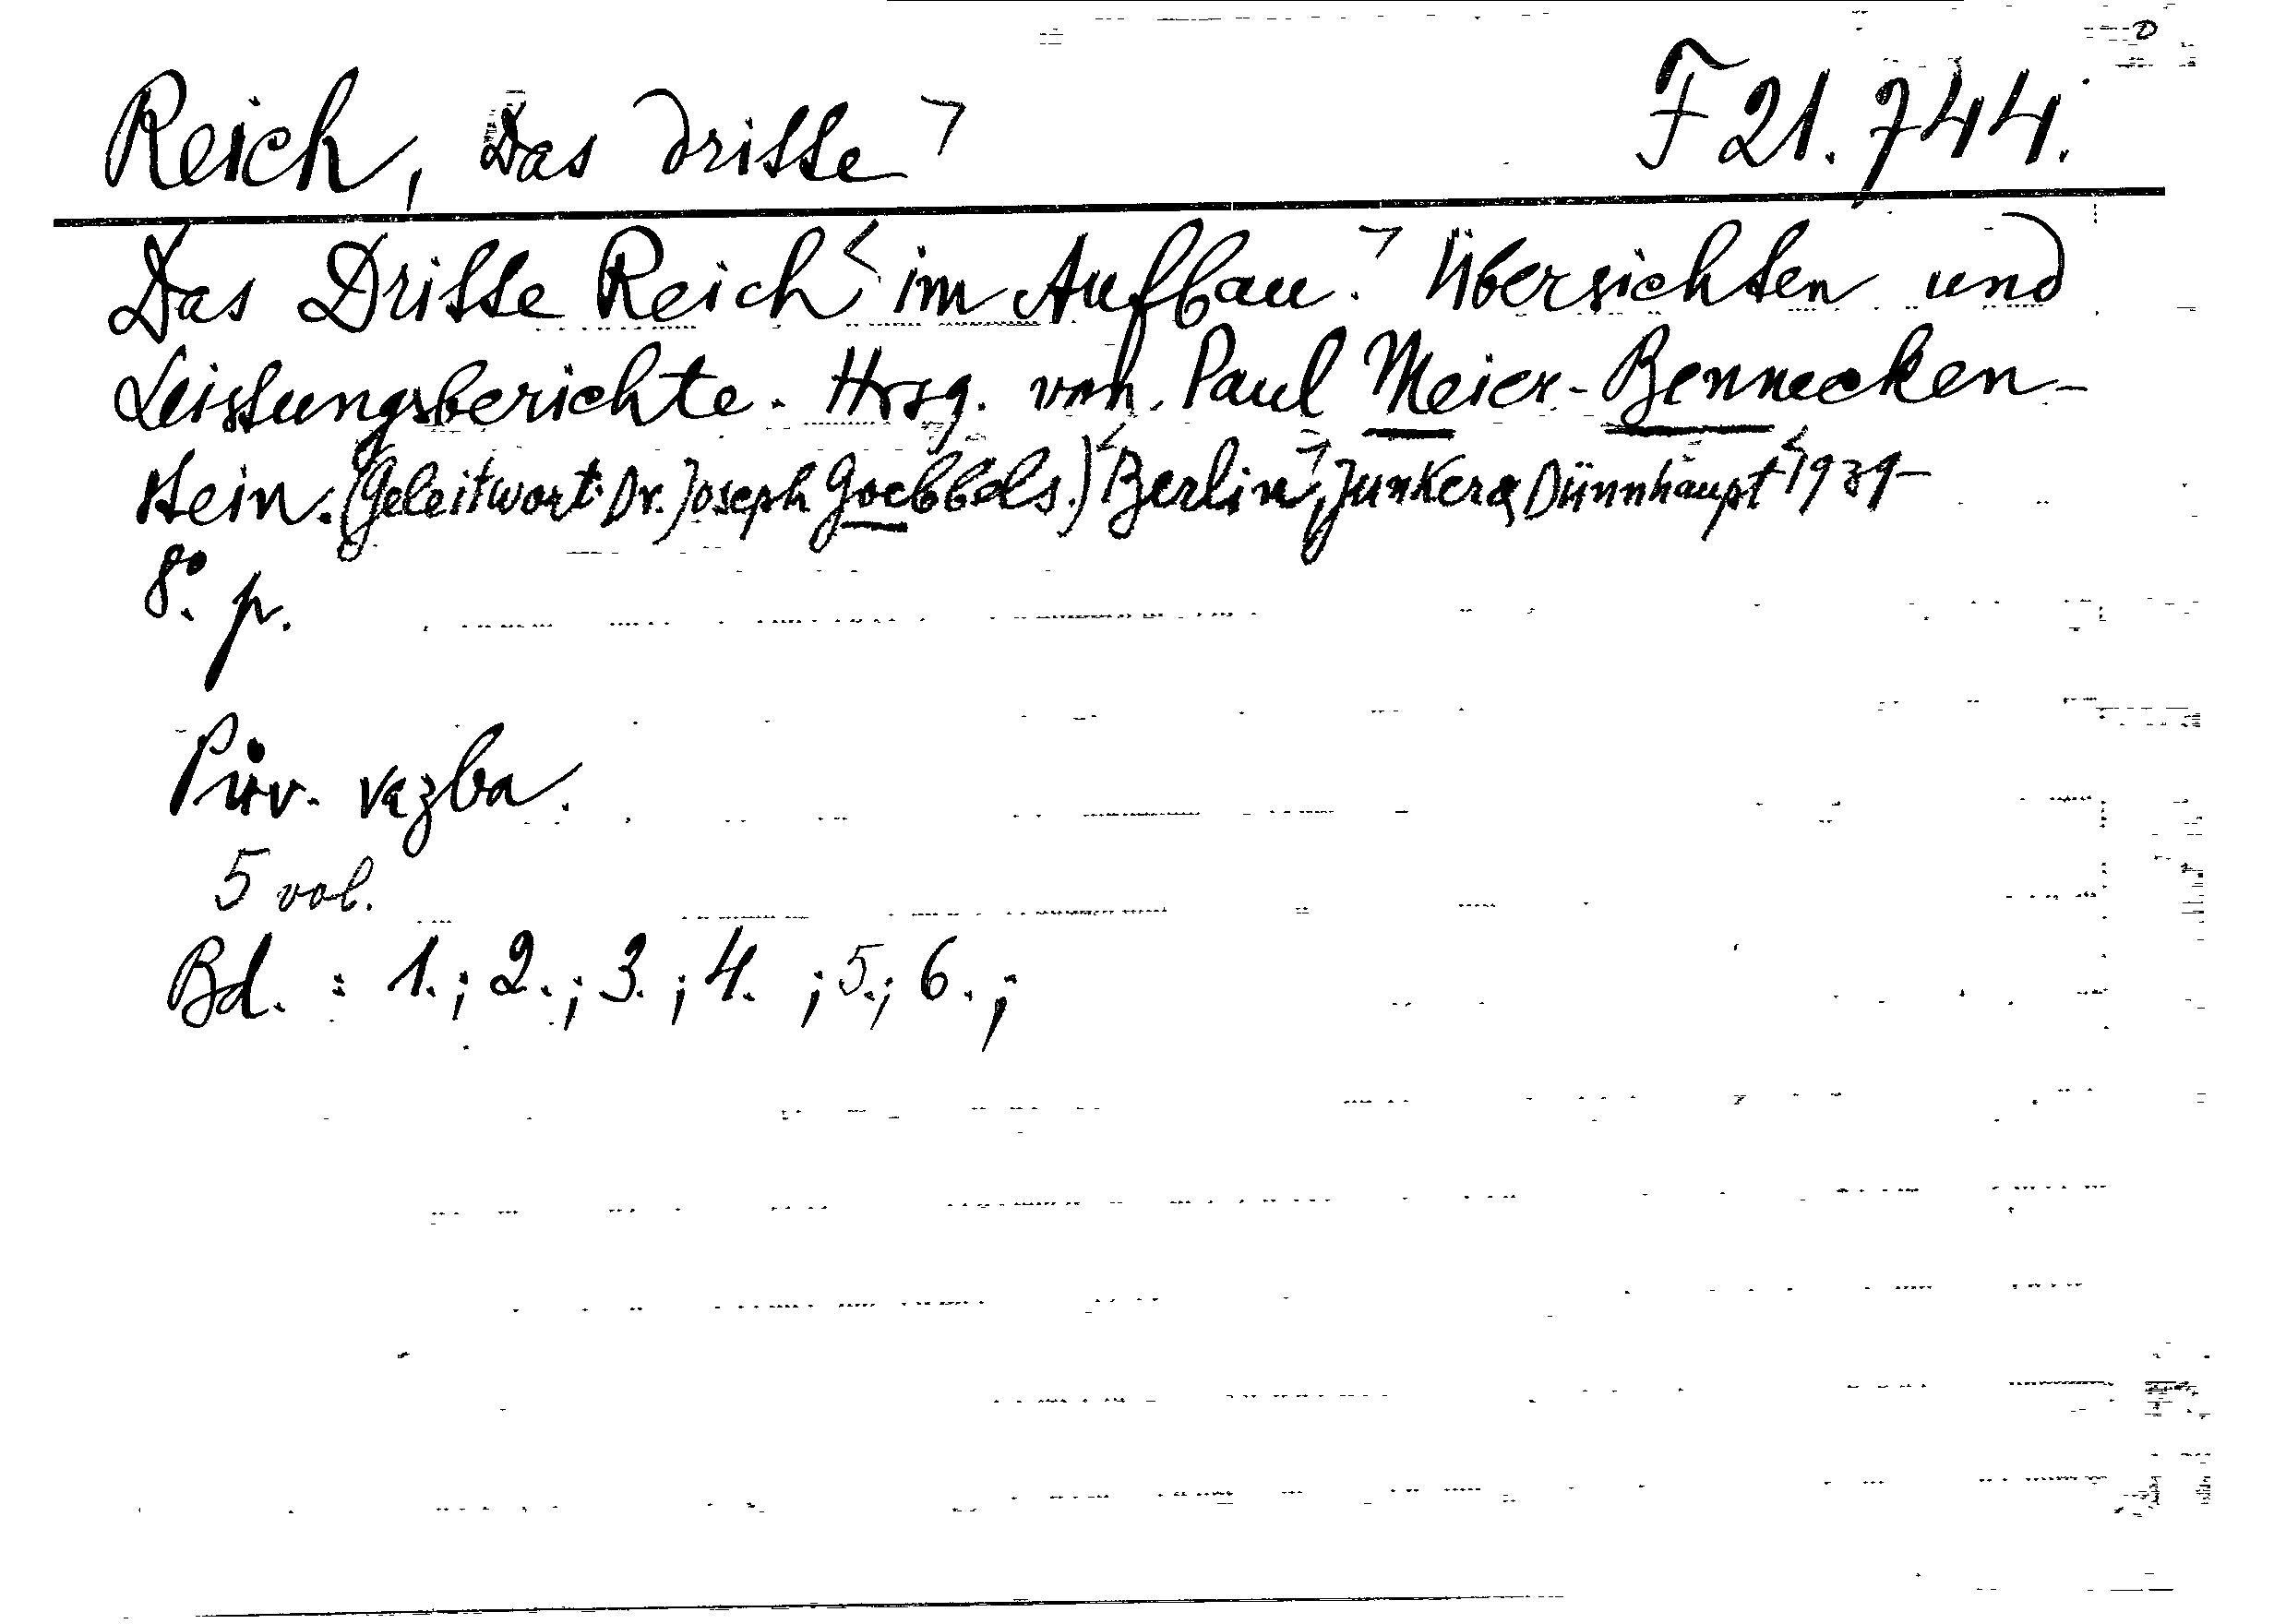 Reich, Das dritte ⌝ F 21.744.
Das Dritte Reich im Aufbau. Übersichten und
Leistungsberichte. Hrsg. von Paul Meier-Bennecken-
stein. (Geleitwort: Dr. Joseph Goebbels.) Berlin, Junker & Dünnhaupt 1939-
8°. p.
Pův. vazba.
5 vol.
Bd. : 1.; 2.; 3.; 4. ; 5.; 6. ;